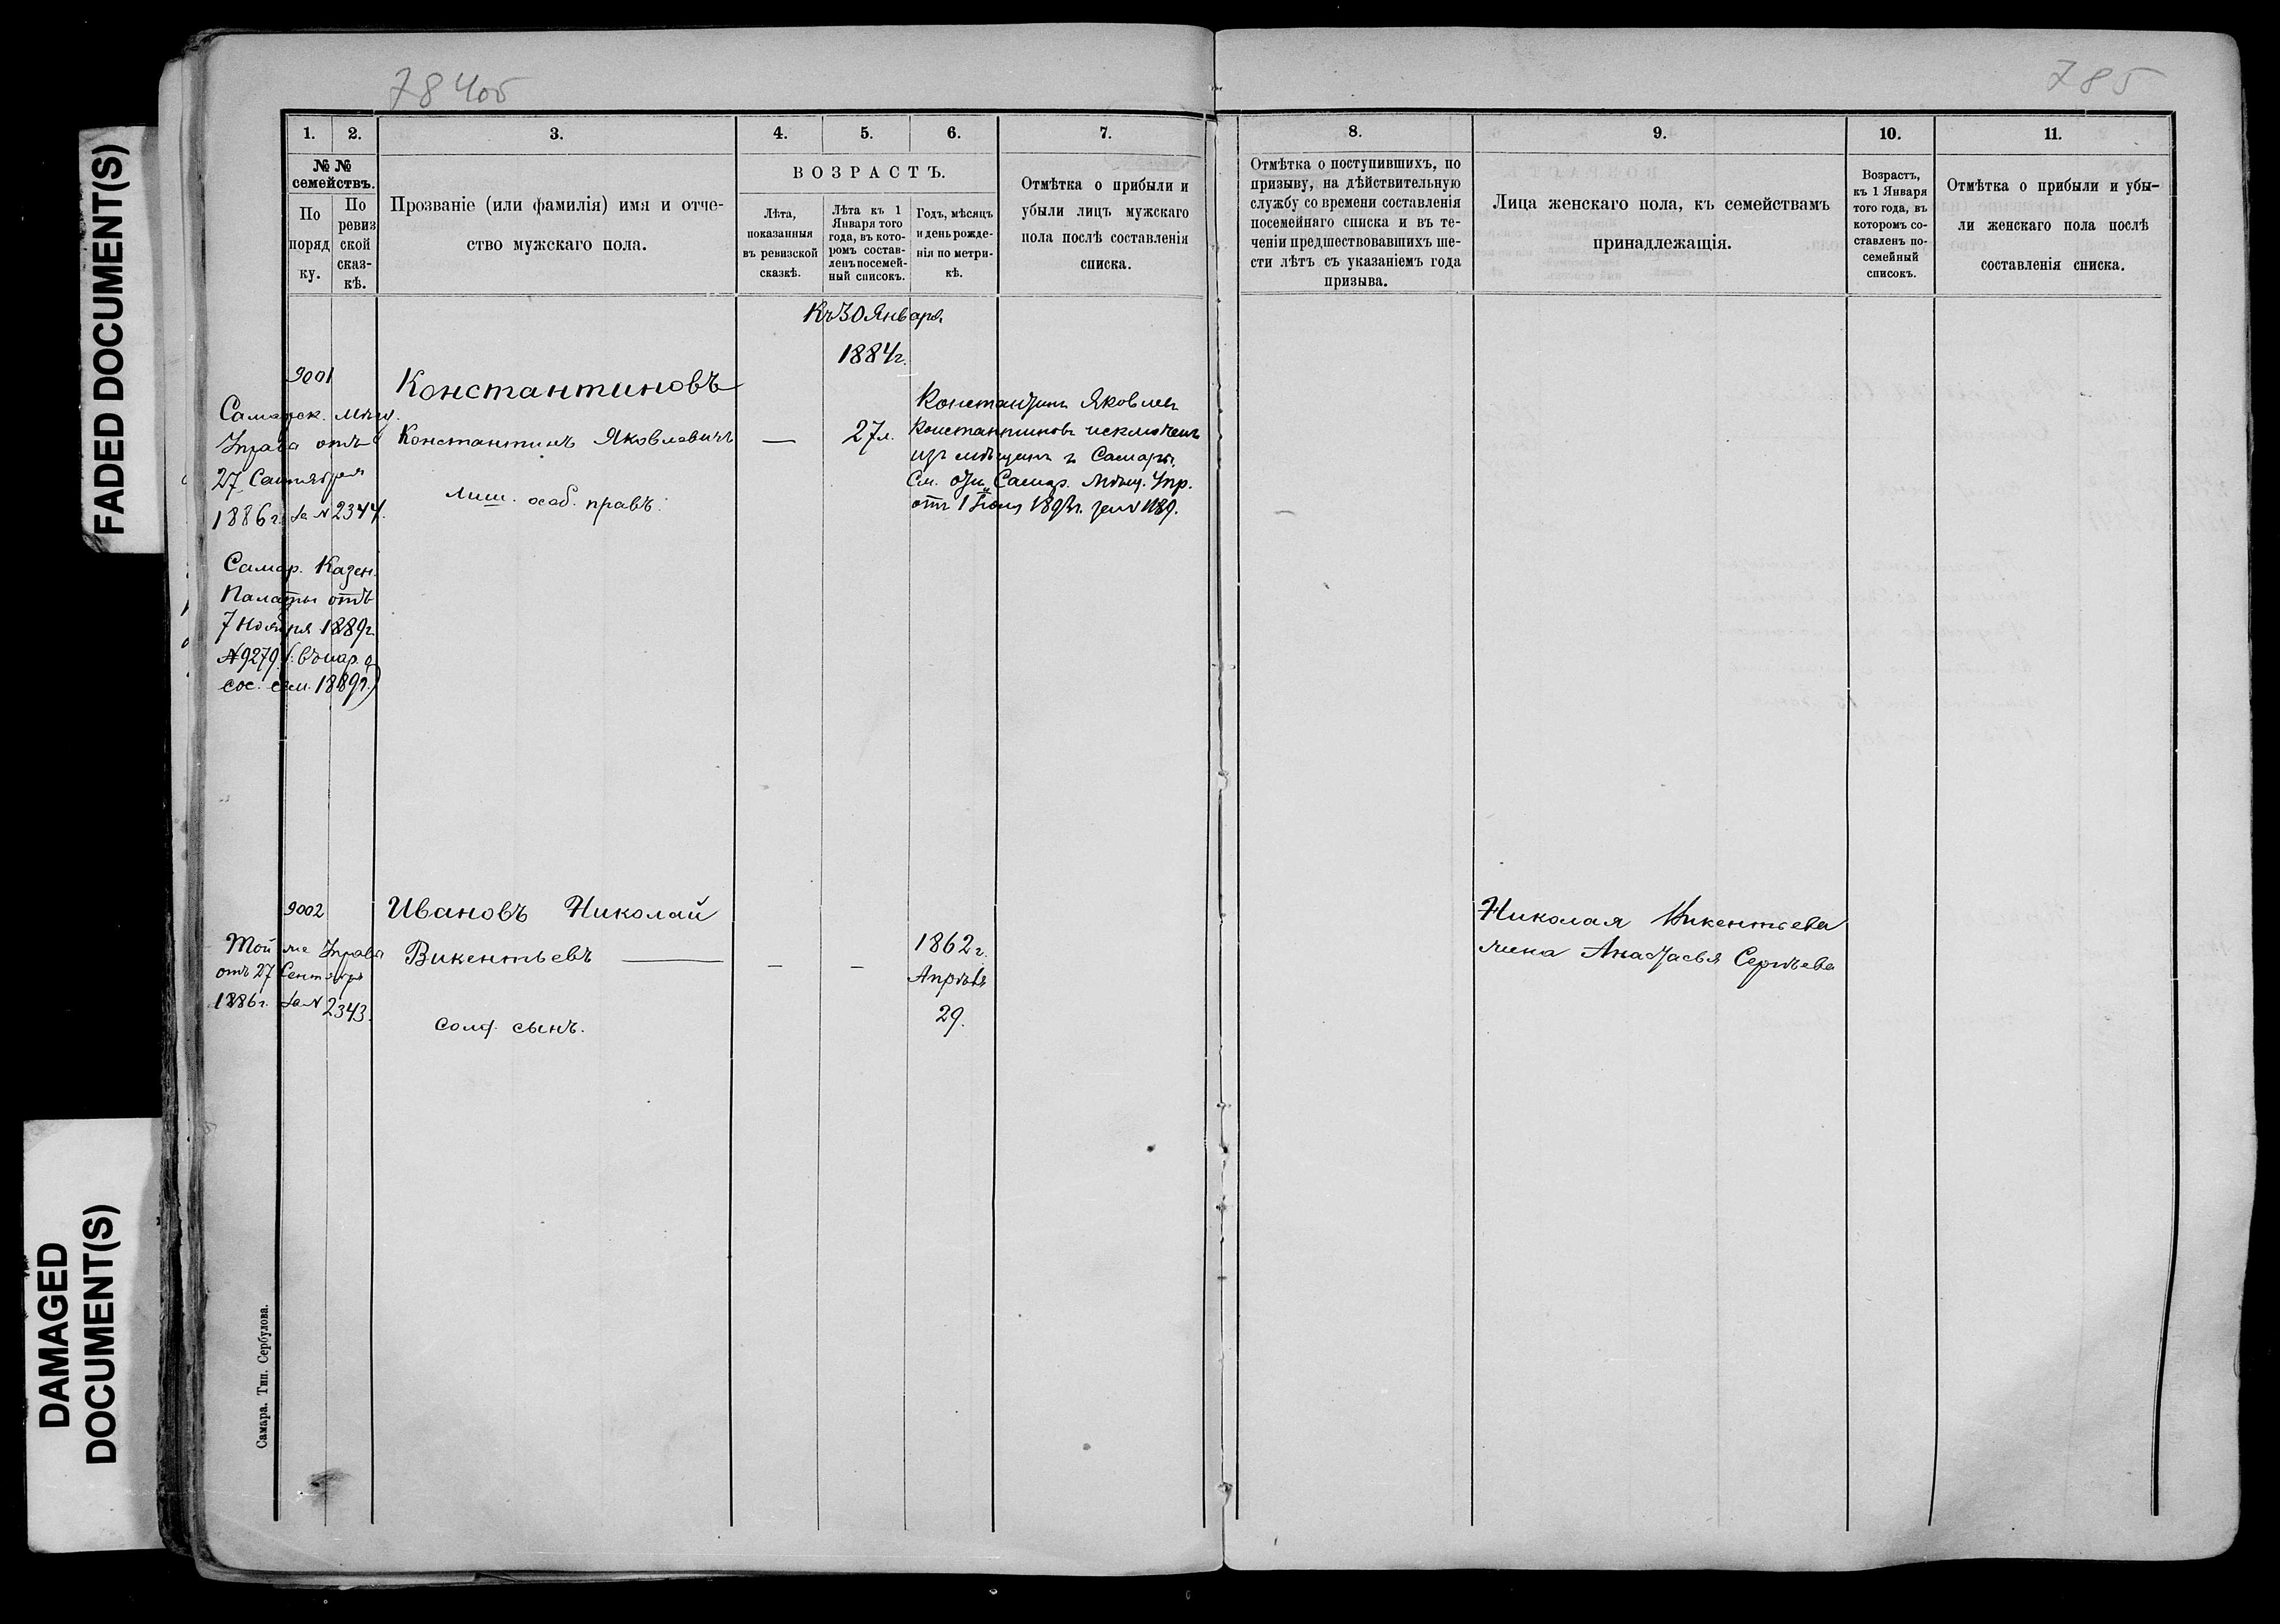 FADED DOCUMENT(S)
DAMAGED
DOCUMENT(S)
784об
785
1.
2.
3.
4.
5.
6.
7.
№ №
семействъ.
По
поряд
ку.
По
ревиз
ской
сказ-
кѣ.
Прозваніе (или фамилія) имя и отче-
ство мужскаго пола.
ВОЗРАСТЪ.
Лѣта,
показанныя
въ ревизской
сказкѣ.
Лѣта къ 1
Января того
года, въ кото-
ромъ состав-
ленъ посемей-
ный списокъ.
Годъ, мѣсяцъ
и день рожде-
нія по метри-
кѣ.
Отмѣтка о прибыли и
убыли лицъ мужскаго
пола послѣ составленія
списка.
8.
9.
10.
11.
Отмѣтка о поступившихъ, по
призыву, на дѣйствительную
службу со времени составленія
посемейнаго списка и въ те-
ченіи предшествовавшихъ ше-
сти лѣтъ съ указаніемъ года
призыва.
Лица женскаго пола, къ семействамъ
принадлежащія.
Возрастъ,
къ 1 Января
того года, въ
которомъ со-
ставленъ по-
семейный
списокъ.
Отмѣтка о прибыли и убы-
ли женскаго пола послѣ
составленія списка.
Къ 30 Января
1884 г.
9001
Самарск. Мѣщ.
Управа отъ
27 Сентября
1886 г. за № 2344.
Самар. Казен.
Палаты отъ
7 Ноября 1889 г.
№ 9279
сем. 1889 г.)
Константиновъ
Константинъ Яковлевичъ — 27 л.
лиш. особ. правъ.
Константинъ Яковлевъ
Константиновъ исключенъ
изъ мѣщанъ г. Самары.
См. Самар. Мѣщ. Упр.
отъ 1 Іюня
9002
Той же Управы
отъ 27 Сентября
1886 г. за № 2343.
Ивановъ Николай
Викентьевъ — — —
солд. сынъ.
1862 г.
Апрѣля
29.
Николая Викентьева
жена Анастасья Сергѣева
Самара. Тип. Сербулова.